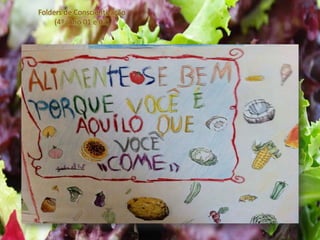 Folders de Conscientização
ALIMENTE-SE BEM
PORQUE VOCÊ É
AQUILO QUE
VOCÊ
"COME"